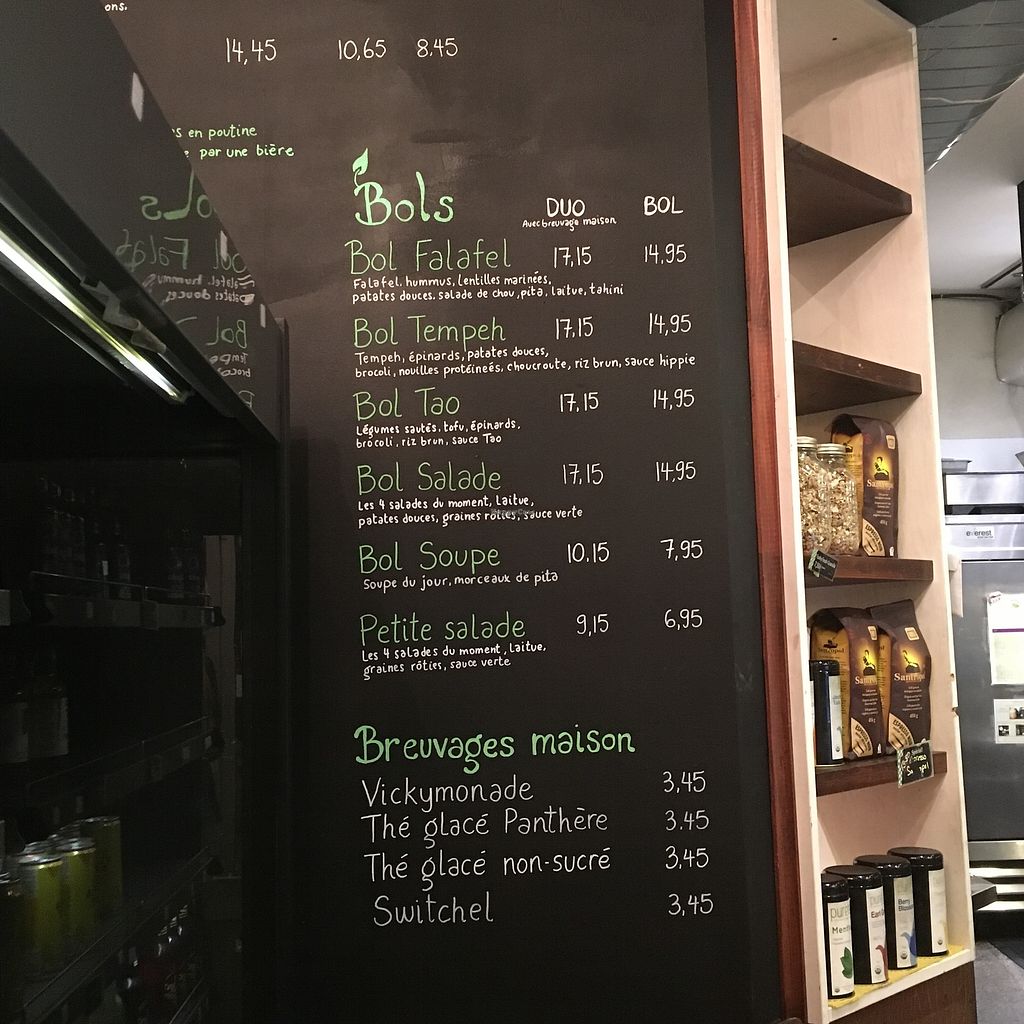 ons.
14,45 10,65 8.45
s en poutine
par une bière
Bols DUO BOL
Avec breuvage maison
Bol Falafel 17,15 14,95
Falafel, hummus, lentilles marinées,
patates douces, salade de chou, pita, laitue, tahini
Bol Tempeh 17,15 14,95
Tempeh, épinards, patates douces,
brocoli, nouilles protéineés, choucroute, riz brun, sauce hippie
Bol Tao 17,15 14,95
Légumes sautés, tofu, épinards,
brocoli, riz brun, sauce Tao
Bol Salade 17,15 14,95
Les 4 salades du moment, Laitue,
patates douces, graines rôties, sauce verte
Bol Soupe 10,15 7,95
Soupe du jour, morceaux de pita
Petite salade 9,15 6,95
Les 4 salades du moment, Laitue,
graines rôties, sauce verte
Breuvages maison
Vickymonade 3,45
Thé glacé Panthère 3.45
Thé glacé non-sucré 3,45
Switchel 3,45
Santropol
Santropol
everest
Berry